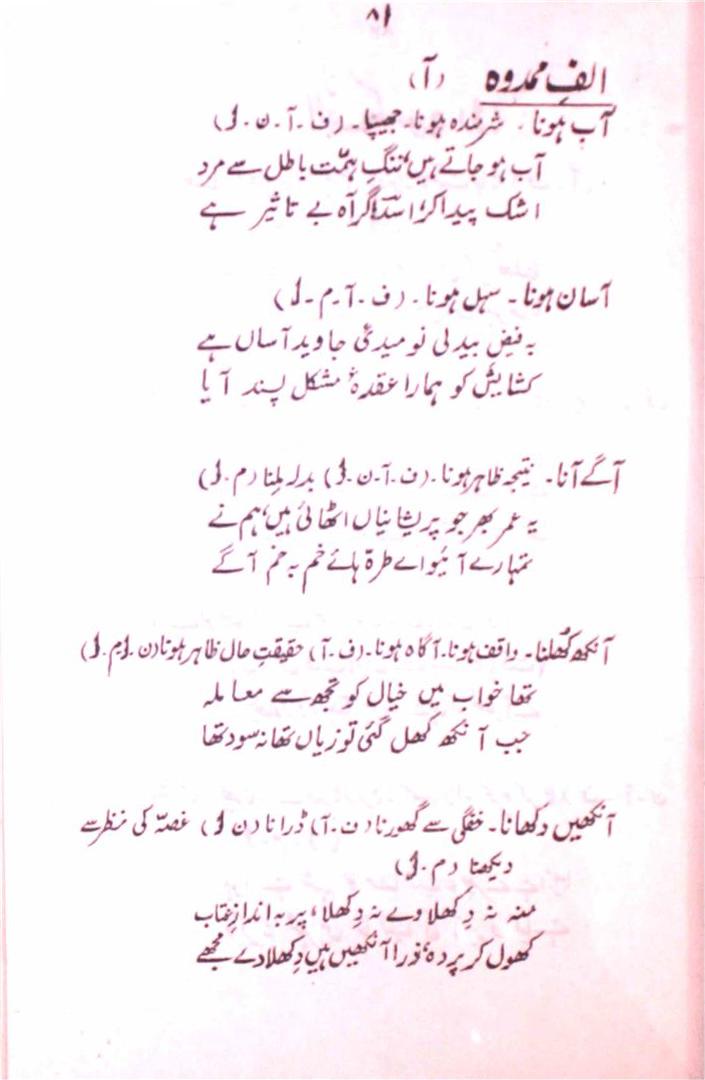 ۸۱
الفِ ممدوہ (آ)
آب ہونا۔ شرمندہ ہونا۔ جھپپا۔ (ف۔ آ۔ ن۔ ل)
آب ہو جاتے ہیں، ننگِ ہمّت باطل سے مرد
اشک پیدا کر، اسدؔ، گر آہ بے تاثیر ہے
آسان ہونا۔ سہل ہونا۔ (ف۔ آ۔ م۔ ل)
بہ فیضِ بیدلی نومیدئ جاوید آساں ہے
کشایش کو ہمارا عقدۂ مشکل پسند آیا
آگے آنا۔ نتیجہ ظاہر ہونا۔ (ف۔ آ۔ ن۔ ل) بدلہ ملنا (م۔ ل)
یہ عمر بھر جو پریشانیاں اٹھائی ہیں، ہم نے
تمہارے آئیو اے طرۃ ہائے خم بہ خم آگے
آنکھ کُھلنا۔ واقف ہونا۔ آگاہ ہونا۔ (ف۔ آ) حقیقتِ حال ظاہر ہونا (ن۔ ل م۔ ل)
تھا خواب میں خیال کو تجھ سے معاملہ
جب آنکھ کھل گئی تو زیاں تھا نہ سود تھا
آنکھیں دکھانا۔ خفگی سے گھورنا (ن۔ آ) ڈرانا (ن ل) غصّہ کی نظر سے
دیکھنا (م۔ ل)
منہ نہ دِکھلا دے نہ دِکھلا، پر بہ اندازِ عتاب
کھول کر پردہ، ذرا آنکھیں ہیں دِکھلا دے مجھے